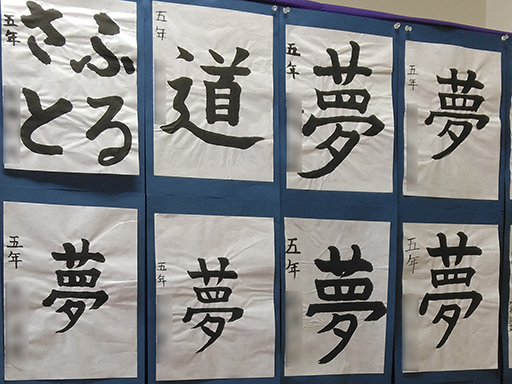 ふる
さと
五年
道
五年
夢
五年
夢
五年
夢
五年
夢
五年
夢
五年
夢
五年